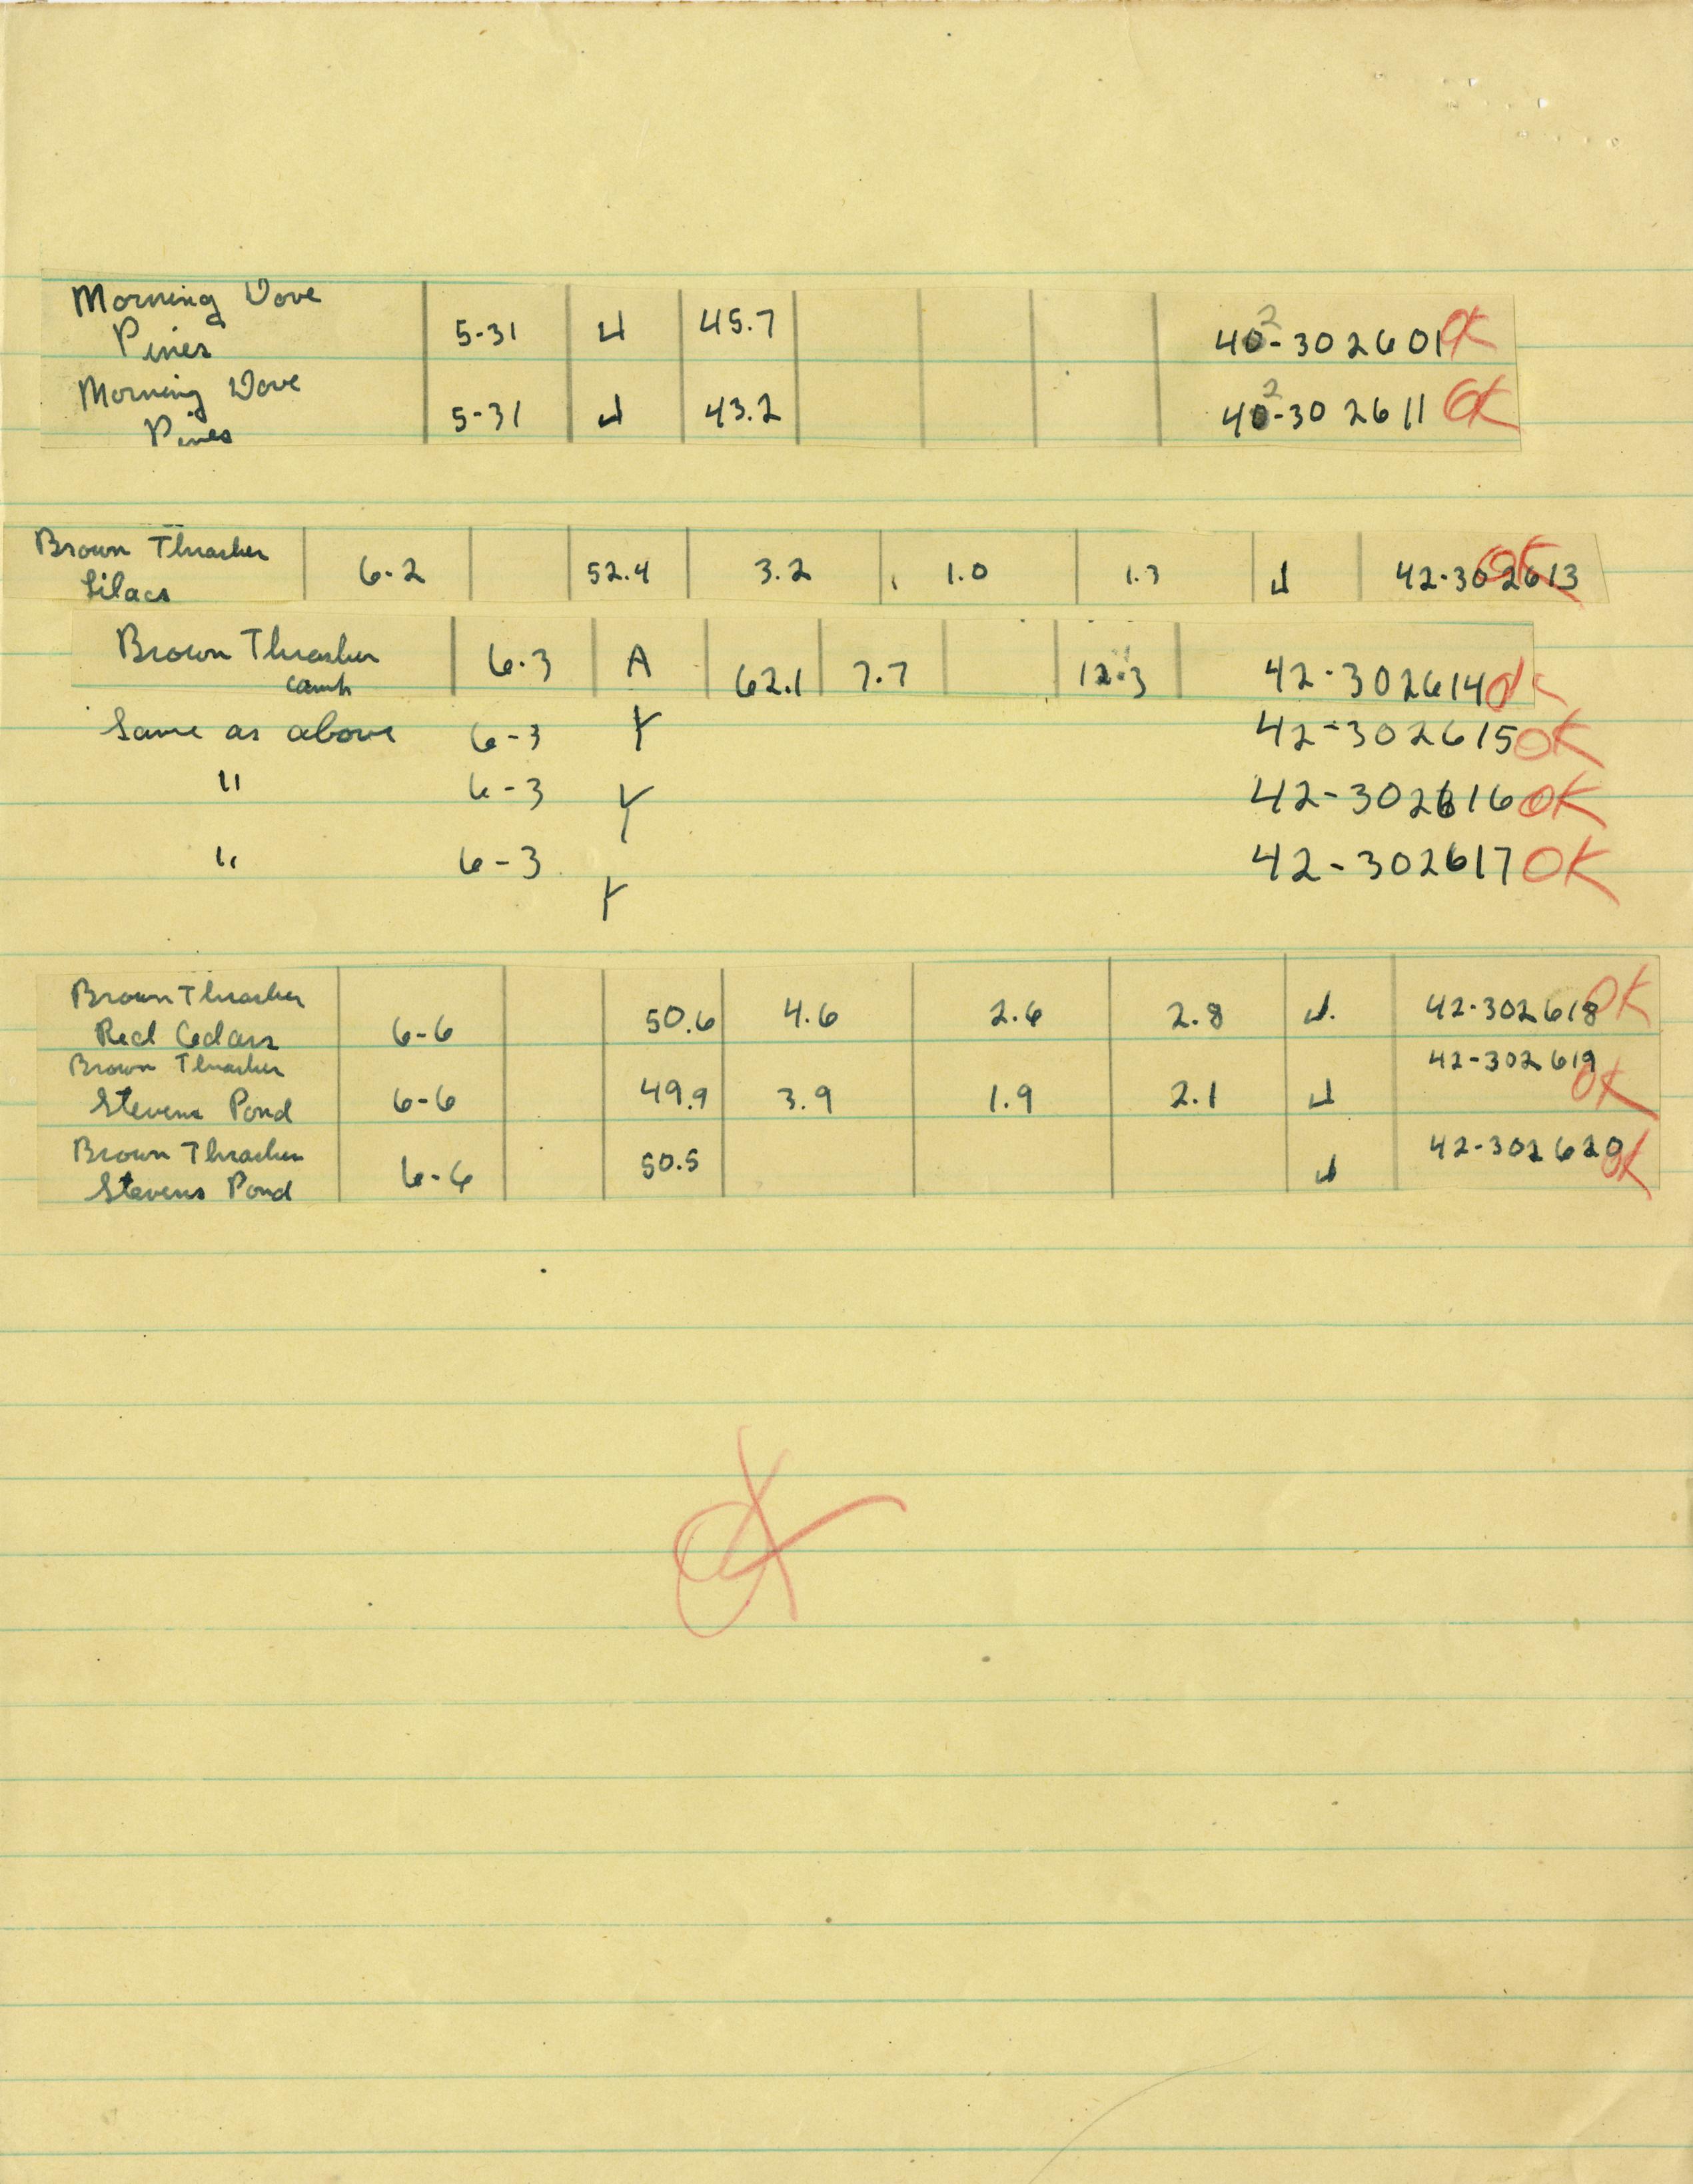 Morning Dove
Pines 5-31 4 45.7 40²-302601 OK
Morning Dove
Pines 5-31 4 43.2 40²-302611 OK
Brown Thrasher
Lilacs 6-2 52.4 3.2 1.0 1.3 4 42-302613 OK
Brown Thrasher
camp 6-3 A 62.1 7.7 12.3 42-302614 OK
Same as above 6-3 Y 42-302615 OK
" 6-3 Y 42-302616 OK
" 6-3 Y 42-302617 OK
Brown Thrasher
Red Cedars 6-6 50.6 4.6 2.6 2.8 4 42-302618 OK
Brown Thrasher
Stevens Pond 6-6 49.9 3.9 1.9 2.1 4 42-302619 OK
Brown Thrasher
Stevens Pond 6-6 50.5 4 42-302620 OK
OK